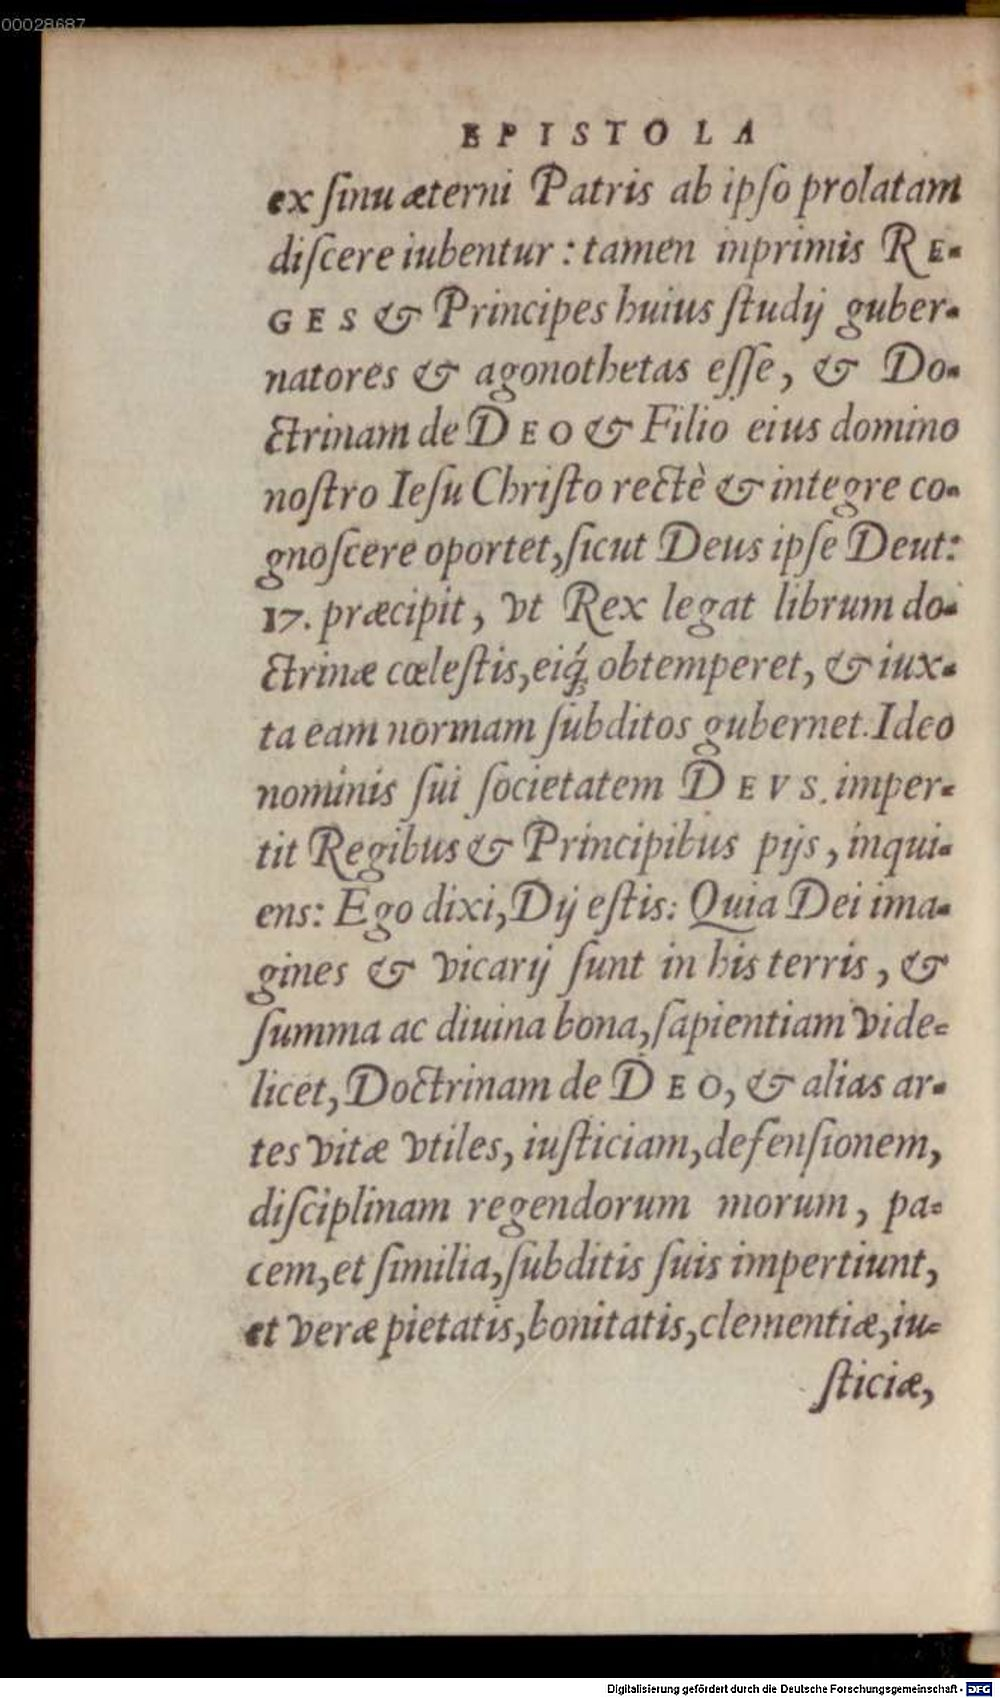 00028687
EPISTOLA
ex ſinu æterni Patris ab ipſo prolatam
diſcere iubentur: tamen inprimis RE-
GES & Principes huius ſtudij guber-
natores & agonothetas eſſe, & Do-
ctrinam de DEO & Filio eius domino
noſtro Ieſu Chriſto rectè & integre co-
gnoſcere oportet, ſicut Deus ipſe Deut:
17. præcipit, vt Rex legat librum do-
ctrinæ cœleſtis, eiq́; obtemperet, & iux-
ta eam normam ſubditos gubernet. Ideo
nominis ſui ſocietatem DEVS. imper-
tit Regibus & Principibus pijs, inqui-
ens: Ego dixi, Dij eſtis: Quia Dei ima-
gines & vicarij ſunt in his terris, &
ſumma ac diuina bona, ſapientiam vide-
licet, Doctrinam de DEO, & alias ar-
tes vitæ vtiles, iuſticiam, defenſionem,
diſciplinam regendorum morum, pa-
cem, et ſimilia, ſubditis ſuis impertiunt,
et veræ pietatis, bonitatis, clementiæ, iu-
ſticiæ,
Digitalisierung gefördert durch die Deutsche Forschungsgemeinschaft - DFG